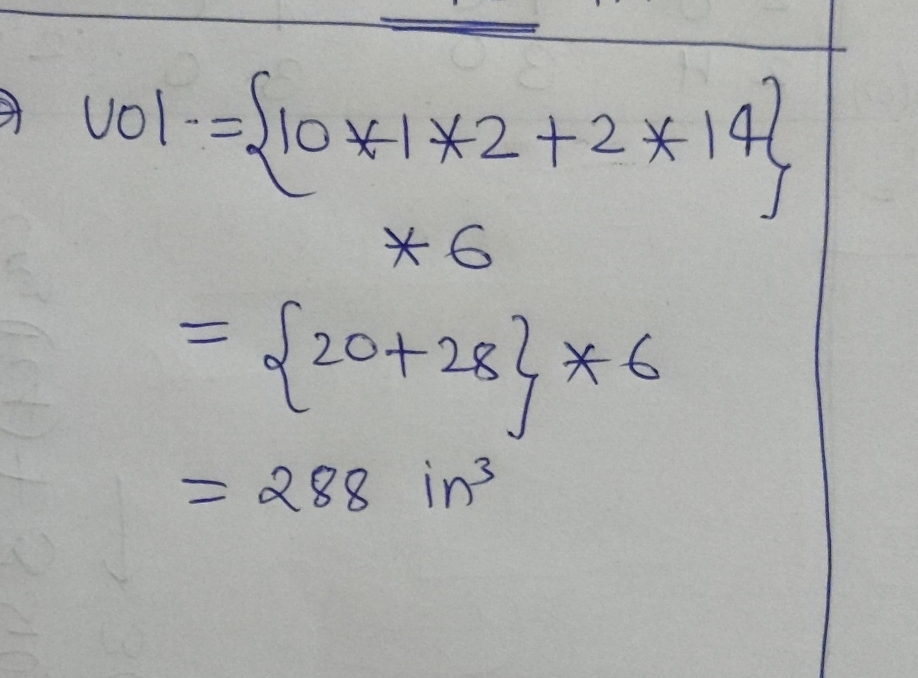 Vol. = {10*1*2+2*14}
*6
= {20+28}*6
= 288 in³